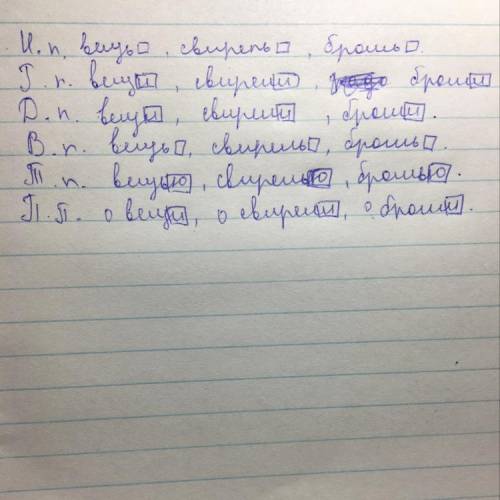 И. п. вещь, свирель, брошь.
Г. п. вещи, свирели, броши
Д. п. вещи, свирели, броши.
В. п. вещь, свирель, брошь.
Т. п. вещью, свирелью, брошью.
П. п. о вещи, о свирели, о броши.